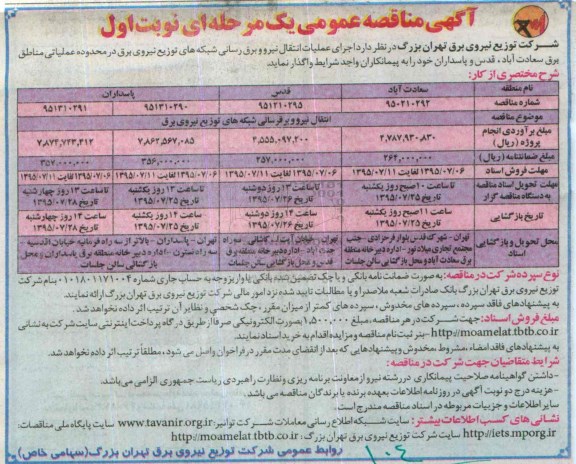 آگهی مناقصه عمومی یک مرحله ای نوبت اول
شرکت توزیع نیروی برق تهران بزرگ در نظر دارد اجرای عملیات انتقال نیرو و برق رسانی شبکه های توزیع نیروی برق در محدوده عملیاتی مناطق
برق سعادت آباد، قدس و پاسداران خود را به پیمانکاران واجد شرایط واگذار نماید.
شرح مختصری از کار:
نام منطقه سعادت آباد قدس پاسداران
شماره مناقصه ۹۵۰۲۱۰۲۹۲ ۹۵۱۲۱۰۲۹۵ ۹۵۱۳۱۰۲۹۰ ۹۵۱۳۱۰۲۹۱
موضوع مناقصه انتقال نیرو و برقرسانی شبکه های توزیع نیروی برق
مبلغ برآوردی انجام پروژه (ریال) ۴,۷۸۷,۹۳۰,۸۳۰ ۴,۵۵۵,۰۹۷,۲۰۰ ۷,۸۶۲,۵۶۷,۰۸۵ ۷,۸۷۴,۷۲۳,۴۱۲
مبلغ ضمانتنامه (ریال) ۲۶۴,۰۰۰,۰۰۰ ۲۵۷,۰۰۰,۰۰۰ ۳۵۶,۰۰۰,۰۰۰ ۳۵۷,۰۰۰,۰۰۰
مهلت فروش اسناد ۱۳۹۵/۰۷/۰۶ لغایت ۱۳۹۵/۰۷/۱۱ ۱۳۹۵/۰۷/۰۶ لغایت ۱۳۹۵/۰۷/۱۱ ۱۳۹۵/۰۷/۰۶ لغایت ۱۳۹۵/۰۷/۱۱ ۱۳۹۵/۰۷/۰۶ لغایت ۱۳۹۵/۰۷/۱۱
مهلت تحویل اسناد مناقصه به دستگاه مناقصه گزار تا ساعت ۱۰ صبح روز یکشنبه ۱۳۹۵/۰۷/۲۵ تا ساعت ۱۳ روز دوشنبه ۱۳۹۵/۰۷/۲۶ تا ساعت ۱۳ روز یکشنبه ۱۳۹۵/۰۷/۲۵ تا ساعت ۱۳ روز چهارشنبه ۱۳۹۵/۰۷/۲۸
تاریخ بازگشایی ساعت ۱۱ صبح روز یکشنبه ۱۳۹۵/۰۷/۲۵ ساعت ۱۴ روز دوشنبه ۱۳۹۵/۰۷/۲۶ ساعت ۱۴ روز یکشنبه ۱۳۹۵/۰۷/۲۵ ساعت ۱۴ روز چهارشنبه ۱۳۹۵/۰۷/۲۸
محل تحویل و بازگشایی اسناد تهران - شهرک قدس بلوار فرحزادی - جنب مجتمع تجاری میلاد نور - اداره دبیرخانه منطقه برق سعادت آباد و محل بازگشایی سالن جلسات تهران - خیابان آیت ا... کاشانی - سه راه جنت آباد - اداره دبیرخانه منطقه برق قدس و محل بازگشایی سالن جلسات تهران - پاسداران - بالاتر از سه راه فرمانیه خیابان اقدسیه - سه راه نسترن - اداره دبیرخانه منطقه برق پاسداران و محل بازگشائی سالن جلسات
نوع سپرده شرکت در مناقصه: به صورت ضمانت نامه بانکی و یا چک تضمین شده بانکی یا واریز وجه به حساب جاری شماره ۰۱۰۱۸۰۱۱۷۱۰۰۴ بنام شرکت
توزیع نیروی برق تهران بزرگ بانک صادرات شعبه ملاصدرا و یا مطالبات تایید شده نزد امور مالی شرکت توزیع نیروی برق تهران بزرگ ارائه نمایند.
به پیشنهادهای فاقد سپرده، سپرده های مخدوش، سپرده های کمتر از میزان مقرر، چک شخصی و نظایر آن ترتیب اثر داده نخواهد شد.
مبلغ فروش اسناد: جهت شرکت در هر مناقصه، مبلغ ۱,۵۰۰,۰۰۰ بصورت الکترونیکی صرفا از طریق درگاه پرداخت اینترنتی سایت شرکت به نشانی
http://moamelat.tbtb.co.ir - بتر ثبت نام مناقصه و مزایده اقدام به خرید اسناد نمایند.
به پیشنهادهای فاقد امضاء، مشروط، مخدوش و پیشنهادهایی که بعد از انقضای مدت مقرر در فراخوان واصل می شود، مطلقاً ترتیب اثر داده نخواهد شد.
شرایط متقاضیان جهت شرکت در مناقصه:
- داشتن گواهینامه صلاحیت پیمانکاری در رشته نیرو از معاونت برنامه ریزی و نظارت راهبردی ریاست جمهوری الزامی می باشد.
- هزینه درج دو نوبت آگهی در روزنامه اطلاعات بعهده برنده یا برندگان مناقصه می باشد.
سایر اطلاعات و جزییات مربوطه در اسناد مناقصه مندرج است.
نشانی های کسب اطلاعات بیشتر: سایت شبکه اطلاع رسانی معاملات شرکت توانیر: www.tavanir.org.ir سایت پایگاه ملی مناقصات:
http://iets.mporg.ir سایت شرکت توزیع نیروی برق تهران بزرگ: http://moamelat.tbtb.co.ir
روابط عمومی شرکت توزیع نیروی برق تهران بزرگ (سهامی خاص)
۱۰۴